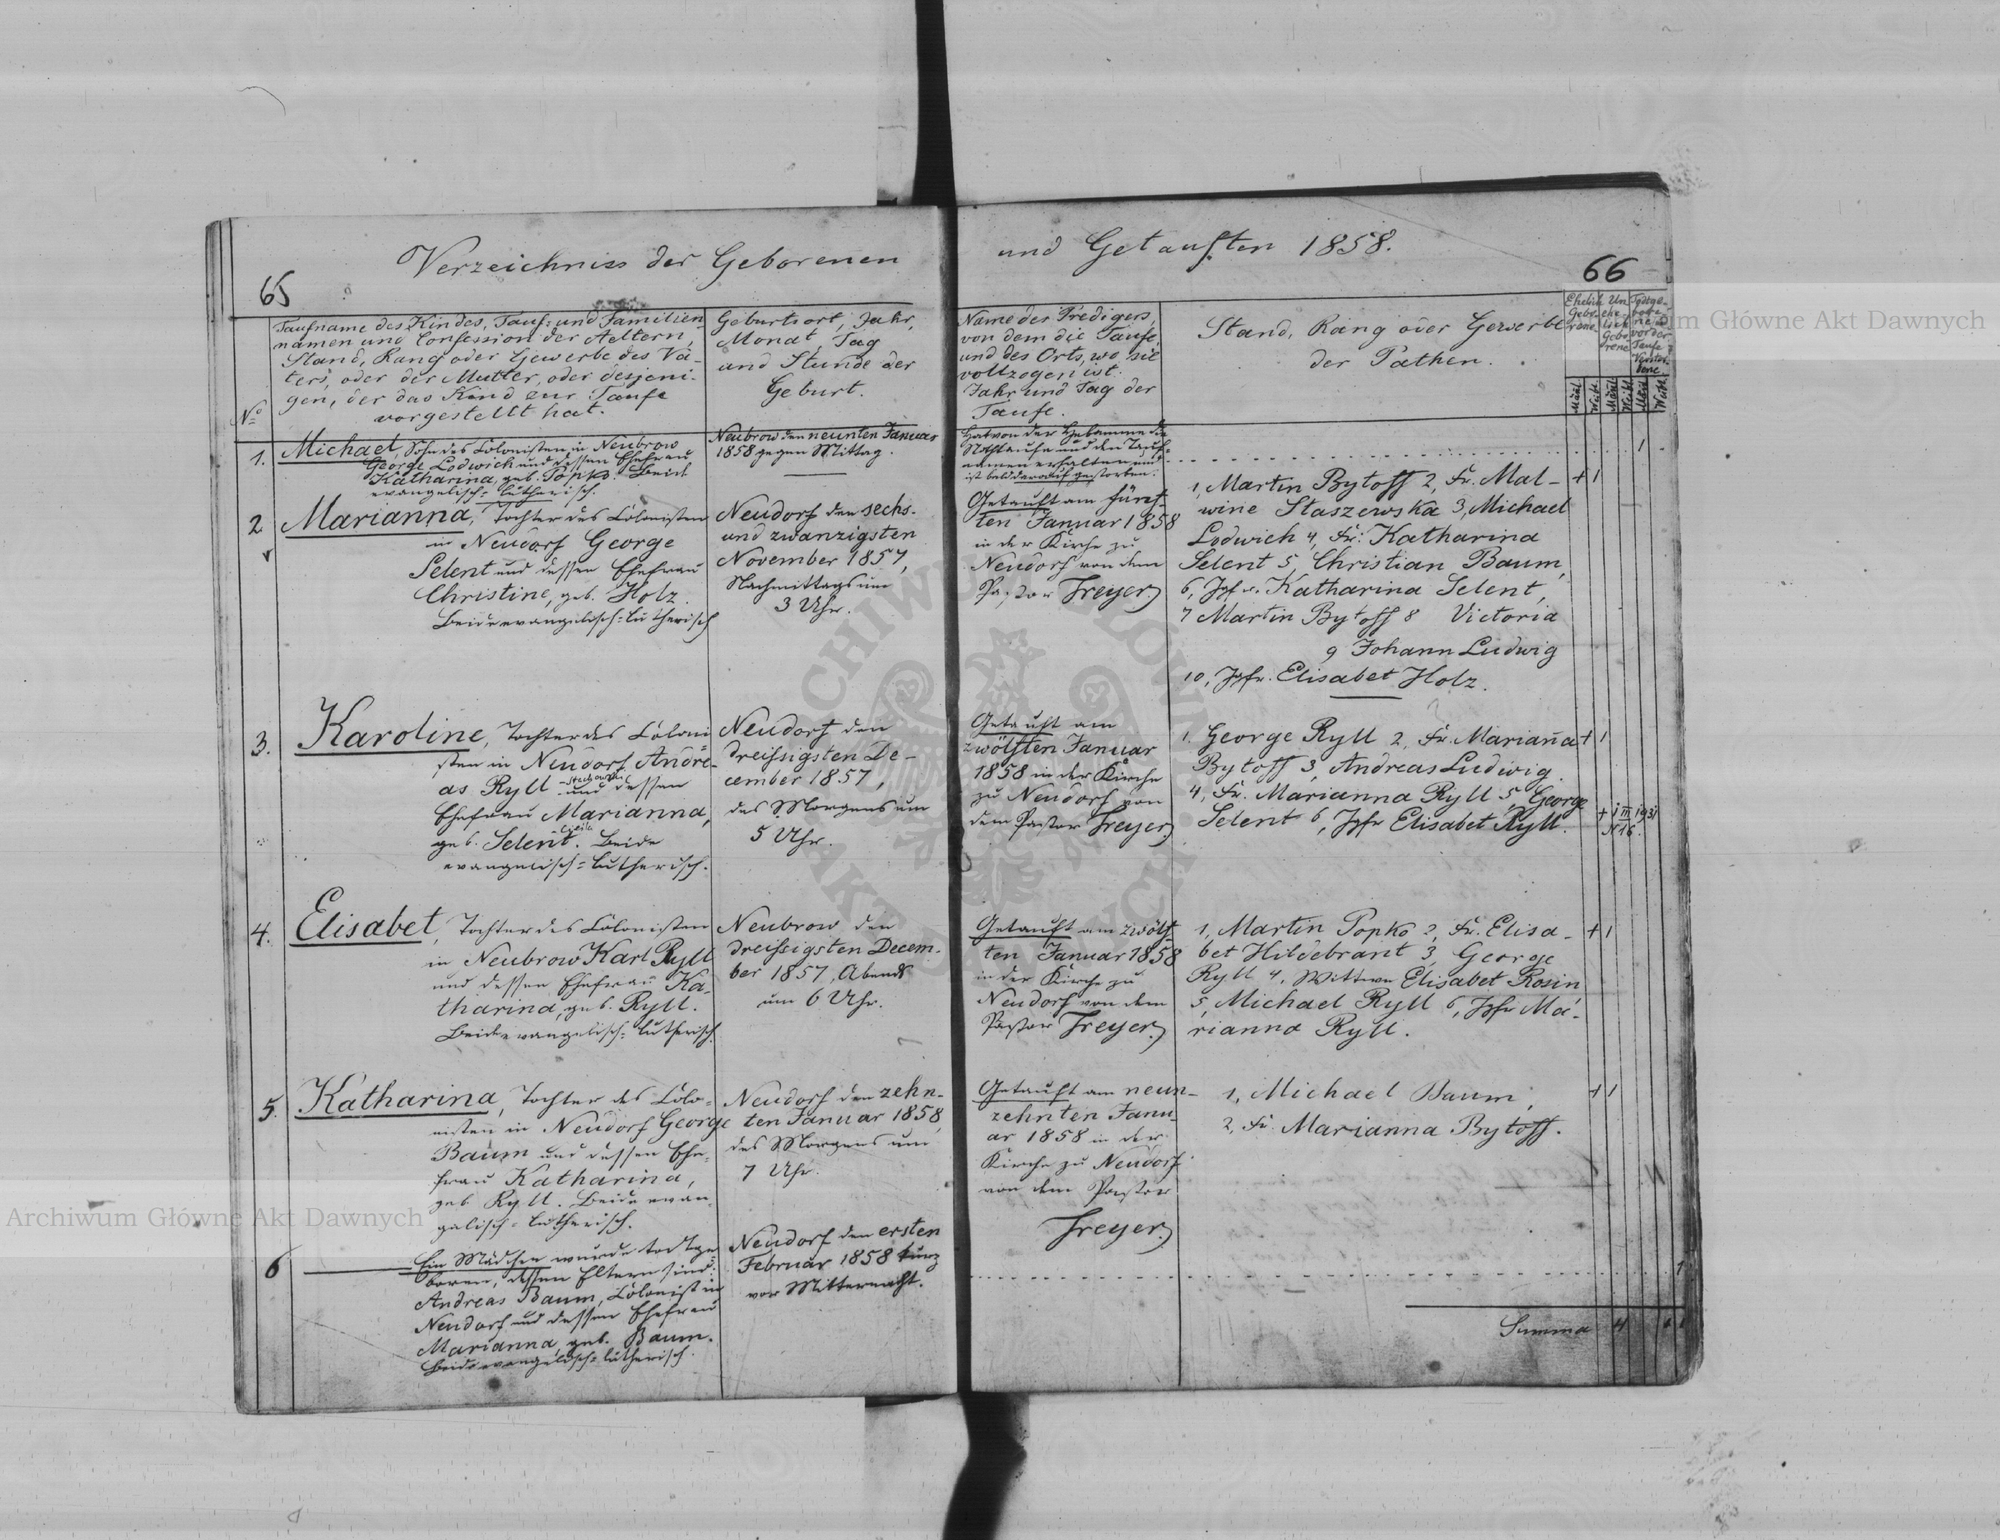 Verzeichniss der Geborenen
65
No
Taufname des Kindes, Tauf- und Familien-
namen und Confession der Aeltern,
Stand, Rang oder Gewerbe des Va-
ters, oder der Mutter, oder desjeni-
gen, der das Kind zur Taufe
vorgestellt hat.
Geburtsort, Jahr,
Monat, Tag
und Stunde der
Geburt.
1.
Michael, Sohn des Colonisten in Neubrow
George Lodwich und dessen Ehefrau
Katharina, geb. Popko. Beide
evangelisch-lutherisch.
Neubrow den neunten Januar
1858 gegen Mittag.
2
Marianna, Tochter des Colonisten
in Neudorf George
Selent und dessen Ehefrau
Christine, geb. Holz.
Beide evangelisch-lutherisch
Neudorf den sechs-
und zwanzigsten
November 1857,
Nachmittags um
3 Uhr.
3.
Karoline, Tochter des Coloni-
sten in Neudorf Andre-
as Ryll und dessen
Ehefrau Marianna,
geb. Selent. Beide
evangelisch-lutherisch.
Neudorf den
dreissigsten De-
cember 1857,
des Morgens um
5 Uhr.
4.
Elisabet, Tochter des Colonisten
in Neubrow Karl Ryll
und dessen Ehefrau Ka-
tharina, geb. Ryll.
Beide evangelisch-lutherisch.
Neubrow den
dreissigsten Decem-
ber 1857, Abends
um 6 Uhr.
5.
Katharina, Tochter des Colo-
nisten in Neudorf George
Baum und dessen Ehe-
frau Katharina,
geb. Ryll. Beide evan-
gelisch-lutherisch.
Neudorf den zehn-
ten Januar 1858,
des Morgens um
7 Uhr.
6
Ein Mädchen wurde todtge-
boren, dessen Eltern sind:
Andreas Baum, Colonist in
Neudorf und dessen Ehefrau
Marianna, geb. Baum.
Beide evangelisch-lutherisch.
Neudorf den ersten
Februar 1858 kurz
vor Mitternacht.
und Getauften 1858.
66
Name des Predigers,
von dem die Taufe,
und des Orts, wo sie
vollzogen ist.
Jahr und Tag der
Taufe.
Stand, Rang oder Gewerbe
der Pathen.
Ehelich
Gebo-
rene
Un
ehe-
lich
Gebo-
rene
Todtge-
bore-
ne u.
vor der
Taufe
Verstor-
bene
Mänl
Weibl.
Mänl
Weibl
Mänl
Weibl.
Hat von der Hebamme die
Nothtaufe und den Tauf-
namen erhalten und
ist bald darauf gestorben.
1
Getauft am fünf-
ten Januar 1858
in der Kirche zu
Neudorf von dem
Pastor Freyer.
1, Martin Bytoff 2, Fr. Mal-
wine Staszewska 3, Michael
Lodwich 4, Fr. Katharina
Selent 5, Christian Baum,
6, Jgfr. Katharina Selent,
7 Martin Bytoff 8 Victoria
9 Johann Ludwig
10, Jgfr. Elisabet Holz.
+ 1
Getauft am
zwölften Januar
1858 in der Kirche
zu Neudorf von
dem Pastor Freyer.
1. George Ryll 2, Fr. Marianna
Bytoff 3, Andreas Ludwig.
4, Fr. Marianna Ryll 5 George
Selent 6, Jgfr Elisabet Ryll.
+ 1
+ 1 III 1931
N 16.
Getauft am zwölf-
ten Januar 1858
in der Kirche zu
Neudorf von dem
Pastor Freyer.
1, Martin Popko 2, Fr. Elisa-
bet Hildebrant 3, George
Ryll 4, Wittwe Elisabet Rosin
5, Michael Ryll 6, Jgfr Ma-
rianna Ryll.
+ 1
Getauft am neun-
zehnten Janu-
ar 1858 in der
Kirche zu Neudorf
von dem Pastor
Freyer.
1, Michael Baum,
2, Fr. Marianna Bytoff.
+ 1
1
Summa 4
Archiwum Główne Akt Dawnych
Archiwum Główne Akt Dawnych